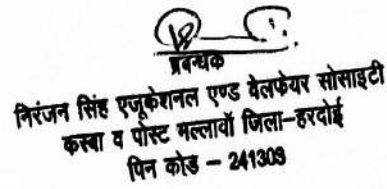 प्रबन्धक
निरंजन सिंह एजूकेशनल एण्ड वेलफेयर सोसाइटी
कस्बा व पोस्ट मल्लावॉ जिला-हरदोई
पिन कोड - 241303